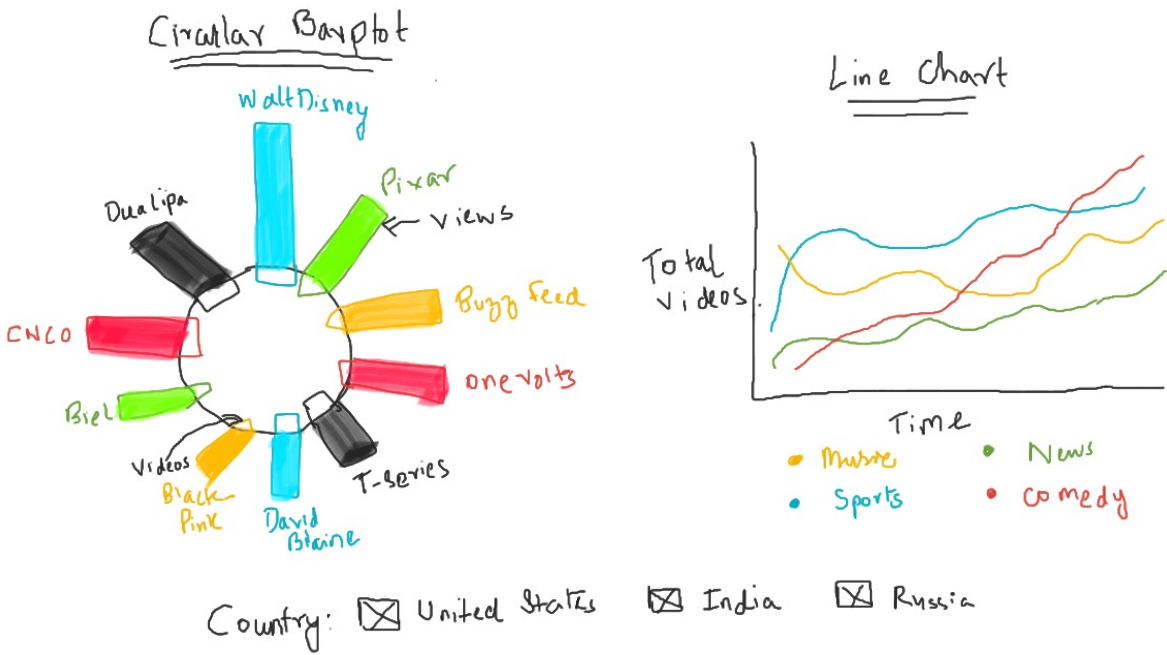 Circular Barplot
Walt Disney
Pixar
Views
Dualipa
Buzz Feed
CNCO
One Volts
Biel
Videos
Black
Pink
David
Blaine
T-series
Line Chart
Total
Videos.
Time
Music
News
Sports
Comedy
Country: United States India Russia